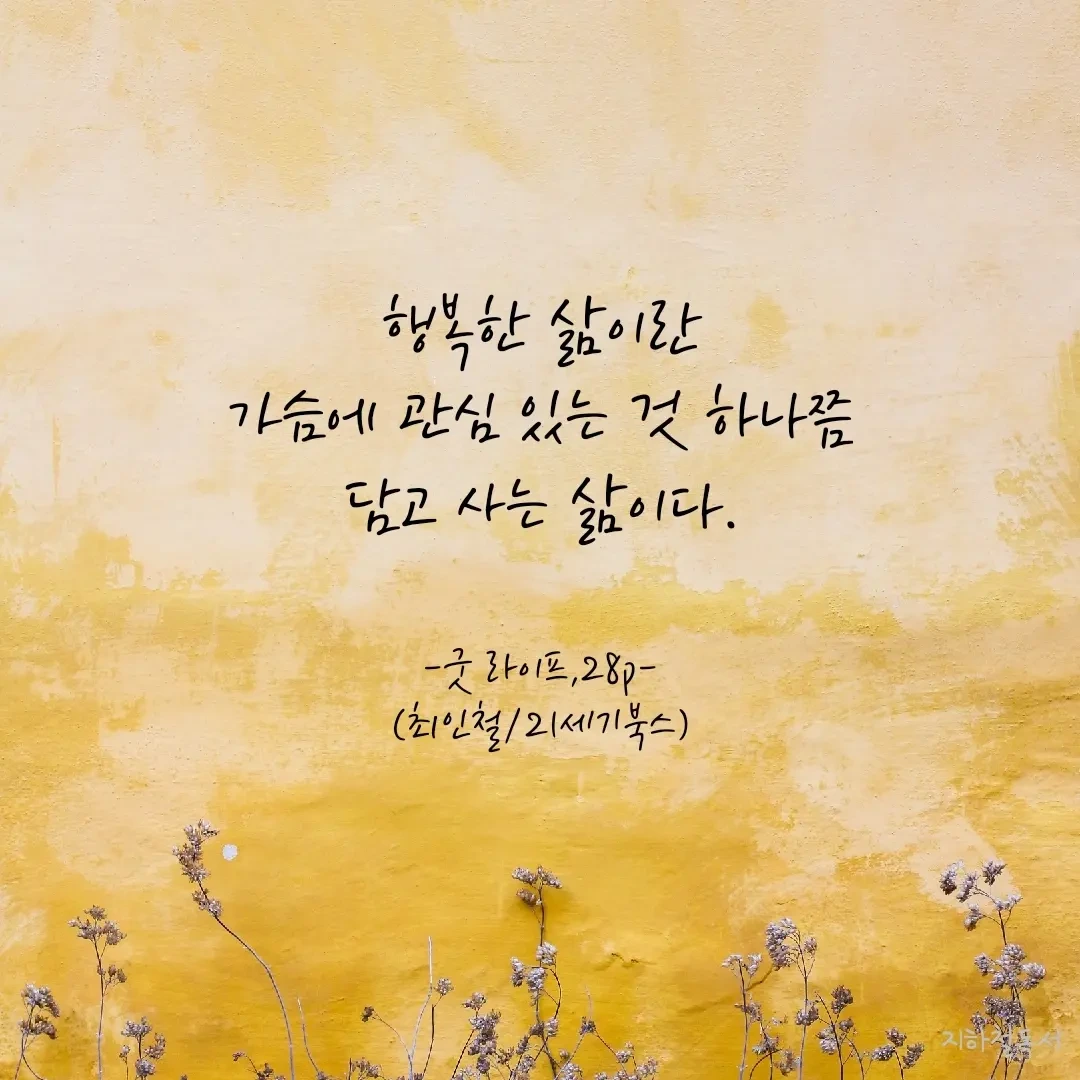 행복한 삶이란
가슴에 관심 있는 것 하나쯤
담고 사는 삶이다.
-굿 라이프,28p-
(최인철/21세기북스)
지하철독서